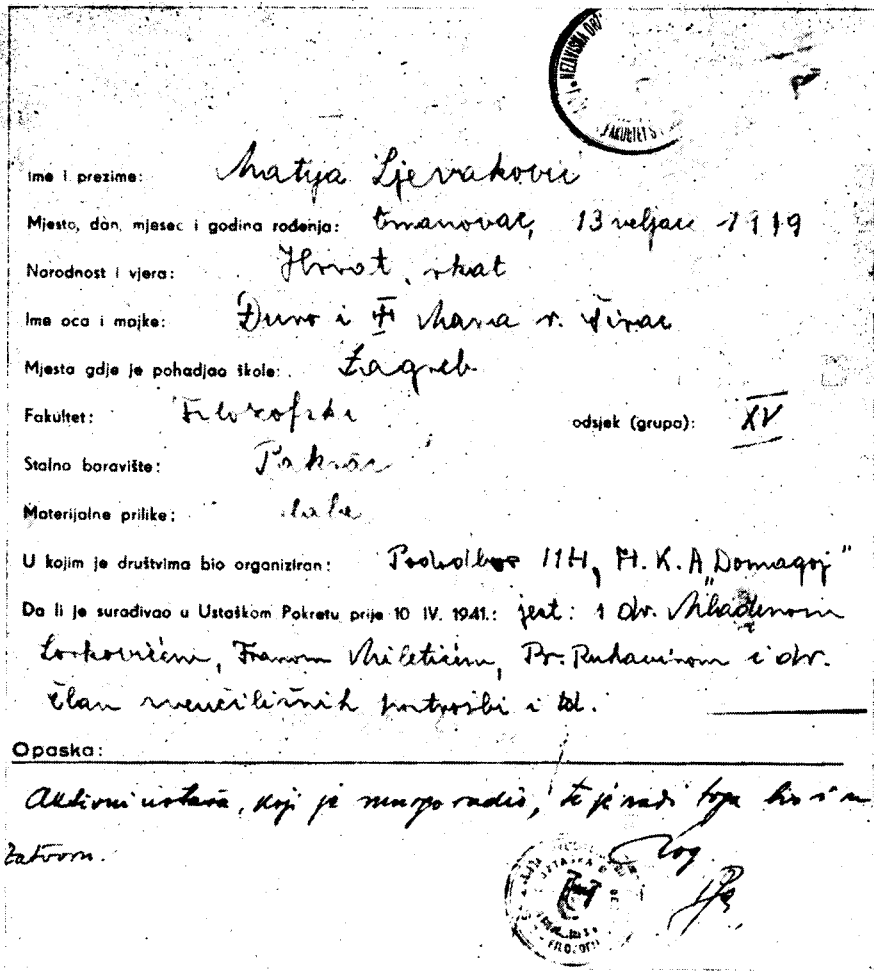 NEZAVISNA DRŽ
FAKULTETS
Ime i prezime: Matija Ljevaković
Mjesto, dan, mjesec i godina rođenja: 13 veljače 1919
Narodnost i vjera: Hrvat, rkat
Ime oca i majke: Đuro i Mara r.
Mjesta gdje je pohadjao škole: Zagreb
Fakultet: Filozofski odsjek (grupa): XV
Stalno boravište: Pakrac
Materijalne prilike: slabe
U kojim je društvima bio organiziran: H.K.A „Domagoj"
Da li je surađivao u Ustaškom Pokretu prije 10 IV. 1941.: jest: s dr. Mladenom
Lorkovićem, Franom Miletićem, Br. Ruhavinom i dr.
član sveučilišnih i td.
Opaska:
Aktivni ustaša, koji je mnogo radio, te je radi toga bio i u
zatvoru.